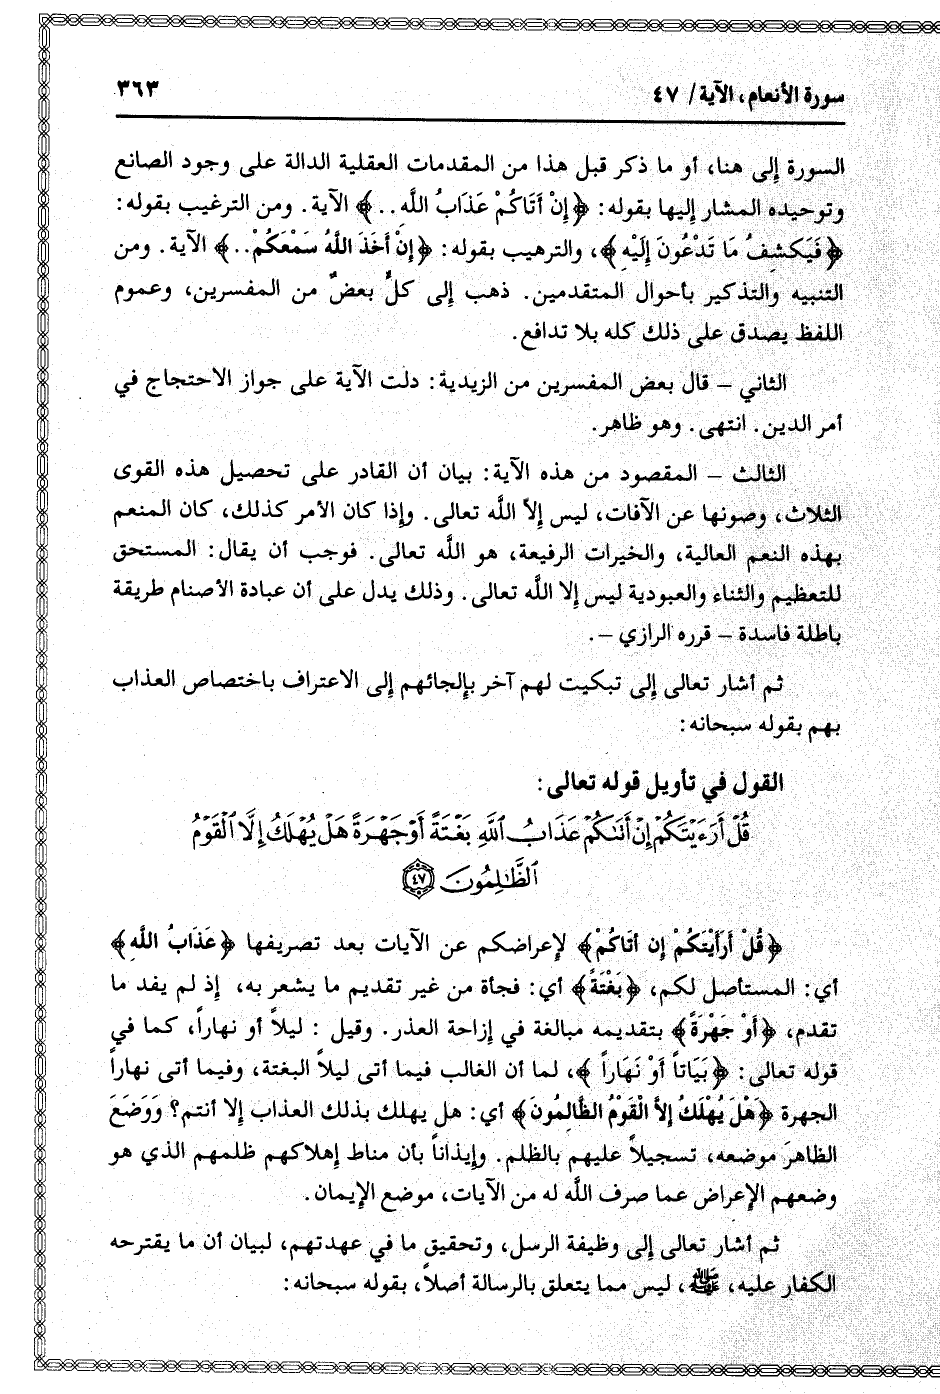 سورة الأنعام، الآية/ ٤٧
٣٦٣
السورة إلى هنا، أو ما ذكر قبل هذا من المقدمات العقلية الدالة على وجود الصانع
وتوحيده المشار إليها بقوله: ﴿إِنْ أَتَاكُمْ عَذَابُ اللَّهِ..﴾ الآية. ومن الترغيب بقوله:
﴿فَيَكْشِفُ مَا تَدْعُونَ إِلَيْهِ﴾، والترهيب بقوله: ﴿إِنْ أَخَذَ اللَّهُ سَمْعَكُمْ..﴾ الآية. ومن
التنبيه والتذكير بأحوال المتقدمين. ذهب إلى كلٍّ بعضٌ من المفسرين، وعموم
اللفظ يصدق على ذلك كله بلا تدافع.
الثاني – قال بعض المفسرين من الزيدية: دلت الآية على جواز الاحتجاج في
أمر الدين. انتهى. وهو ظاهر.
الثالث – المقصود من هذه الآية: بيان أن القادر على تحصيل هذه القوى
الثلاث، وصونها عن الآفات، ليس إلاّ اللَّه تعالى. وإذا كان الأمر كذلك، كان المنعم
بهذه النعم العالية، والخيرات الرفيعة، هو اللَّه تعالى. فوجب أن يقال: المستحق
للتعظيم والثناء والعبودية ليس إلا اللَّه تعالى. وذلك يدل على أن عبادة الأصنام طريقة
باطلة فاسدة – قرره الرازي –.
ثم أشار تعالى إلى تبكيت لهم آخر بإلجائهم إلى الاعتراف باختصاص العذاب
بهم بقوله سبحانه:
القول في تأويل قوله تعالى:
قُلْ أَرَءَيْتَكُمْ إِنْ أَتَىٰكُمْ عَذَابُ ٱللَّهِ بَغْتَةً أَوْ جَهْرَةً هَلْ يُهْلَكُ إِلَّا ٱلْقَوْمُ
ٱلظَّٰلِمُونَ ٤٧
﴿قُلْ أَرَأَيْتَكُمْ إِن أَتَاكُمْ﴾ لإعراضكم عن الآيات بعد تصريفها ﴿عَذَابُ اللَّهِ﴾
أي: المستأصل لكم، ﴿بَغْتَةً﴾ أي: فجأة من غير تقديم ما يشعر به، إذ لم يفد ما
تقدم، ﴿أَوْ جَهْرَةً﴾ بتقديمه مبالغة في إزاحة العذر. وقيل : ليلاً أو نهاراً، كما في
قوله تعالى: ﴿بَيَاتاً أَوْ نَهَاراً ﴾، لما أن الغالب فيما أتى ليلاً البغتة، وفيما أتى نهاراً
الجهرة ﴿هَلْ يُهْلَكُ إِلاَّ الْقَوْمُ الظَّالِمُونَ﴾ أي: هل يهلك بذلك العذاب إلا أنتم؟ وَوَضَعَ
الظاهرَ موضعه، تسجيلاً عليهم بالظلم. وإيذاناً بأن مناط إهلاكهم ظلمهم الذي هو
وضعهم الإعراض عما صرف اللَّه له من الآيات، موضع الإيمان.
ثم أشار تعالى إلى وظيفة الرسل، وتحقيق ما في عهدتهم، لبيان أن ما يقترحه
الكفار عليه، ﷺ، ليس مما يتعلق بالرسالة أصلاً، بقوله سبحانه: